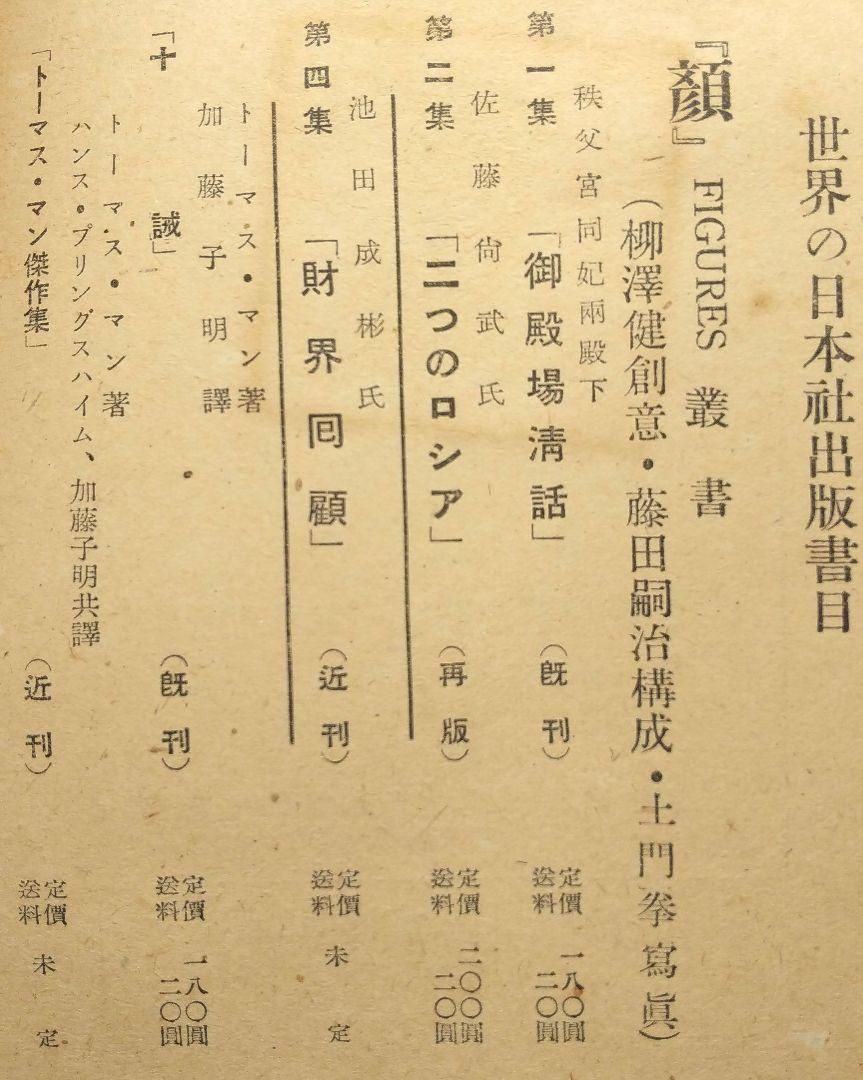 世界の日本社出版書目
『顏』 FIGURES 叢書
(柳澤健創意・藤田嗣治構成・土門拳寫眞)
秩父宮同妃兩殿下
第一集 「御殿場淸話」 (旣刊) 定價 一八〇圓 送料 二〇圓
佐藤尙武氏
第二集 「二つのロシア」 (再版) 定價 二〇〇圓 送料 二〇圓
池田成彬氏
第四集 「財界囘顧」 (近刊) 定價 送料 未定
トーマス・マン著
加藤子明譯
「十誡」 (旣刊) 定價 一八〇圓 送料 二〇圓
トーマス・マン著
ハンス・プリングスハイム、加藤子明共譯
「トーマス・マン傑作集」 (近刊) 定價 送料 未定